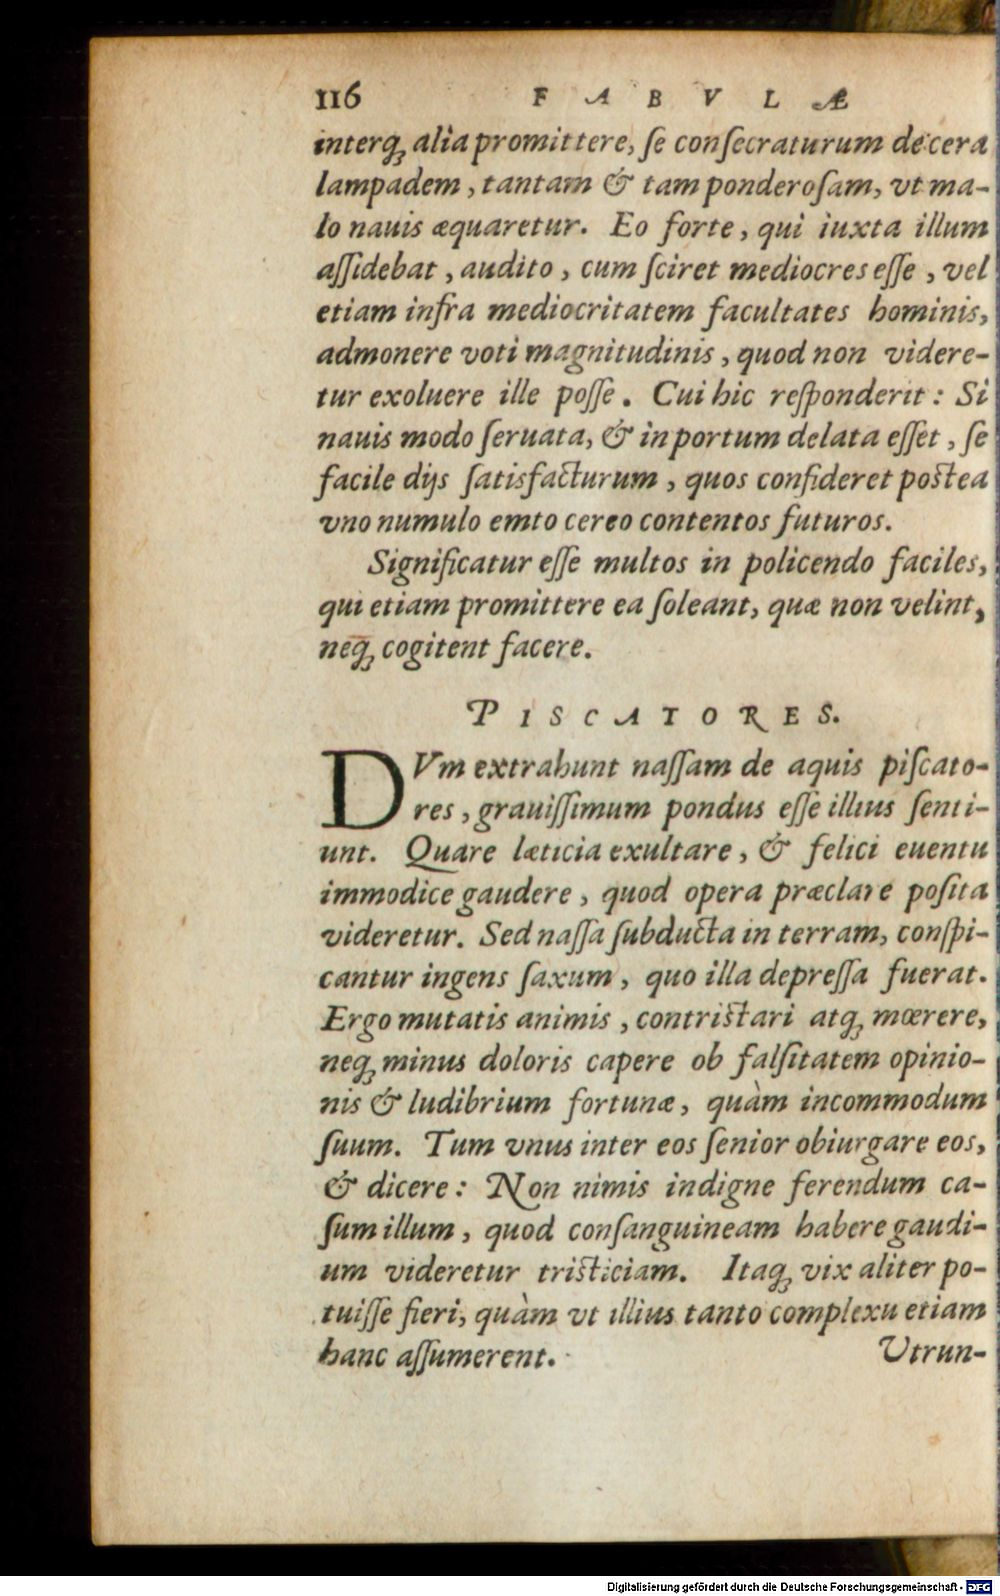 116 FABVLÆ
interq́ꝫ alia promittere, ſe conſecraturum de cera
lampadem, tantam & tam ponderoſam, vt ma-
lo nauis æquaretur. Eo forte, qui iuxta illum
aſſidebat, audito, cum ſciret mediocres eſſe, vel
etiam infra mediocritatem facultates hominis,
admonere voti magnitudinis, quod non videre-
tur exoluere ille poſſe. Cui hic reſponderit: Si
nauis modo ſeruata, & in portum delata eſſet, ſe
facile dijs ſatisfacturum, quos confideret poſtea
vno numulo emto cereo contentos futuros.
Significatur eſſe multos in policendo faciles,
qui etiam promittere ea ſoleant, quæ non velint,
neq́ꝫ cogitent facere.
PISCATORES.
DVm extrahunt naſſam de aquis piſcato-
res, grauiſſimum pondus eſſe illius ſenti-
unt. Quare læticia exultare, & felici euentu
immodice gaudere, quod opera præclare poſita
videretur. Sed naſſa ſubducta in terram, conſpi-
cantur ingens ſaxum, quo illa depreſſa fuerat.
Ergo mutatis animis, contriſtari atqꝫ mœrere,
neqꝫ minus doloris capere ob falſitatem opinio-
nis & ludibrium fortunæ, quàm incommodum
ſuum. Tum vnus inter eos ſenior obiurgare eos,
& dicere: Non nimis indigne ferendum ca-
ſum illum, quod conſanguineam habere gaudi-
um videretur triſticiam. Itaqꝫ vix aliter po-
tuiſſe fieri, quàm vt illius tanto complexu etiam
hanc aſſumerent.
Vtrun-
Digitalisierung gefördert durch die Deutsche Forschungsgemeinschaft - DFG